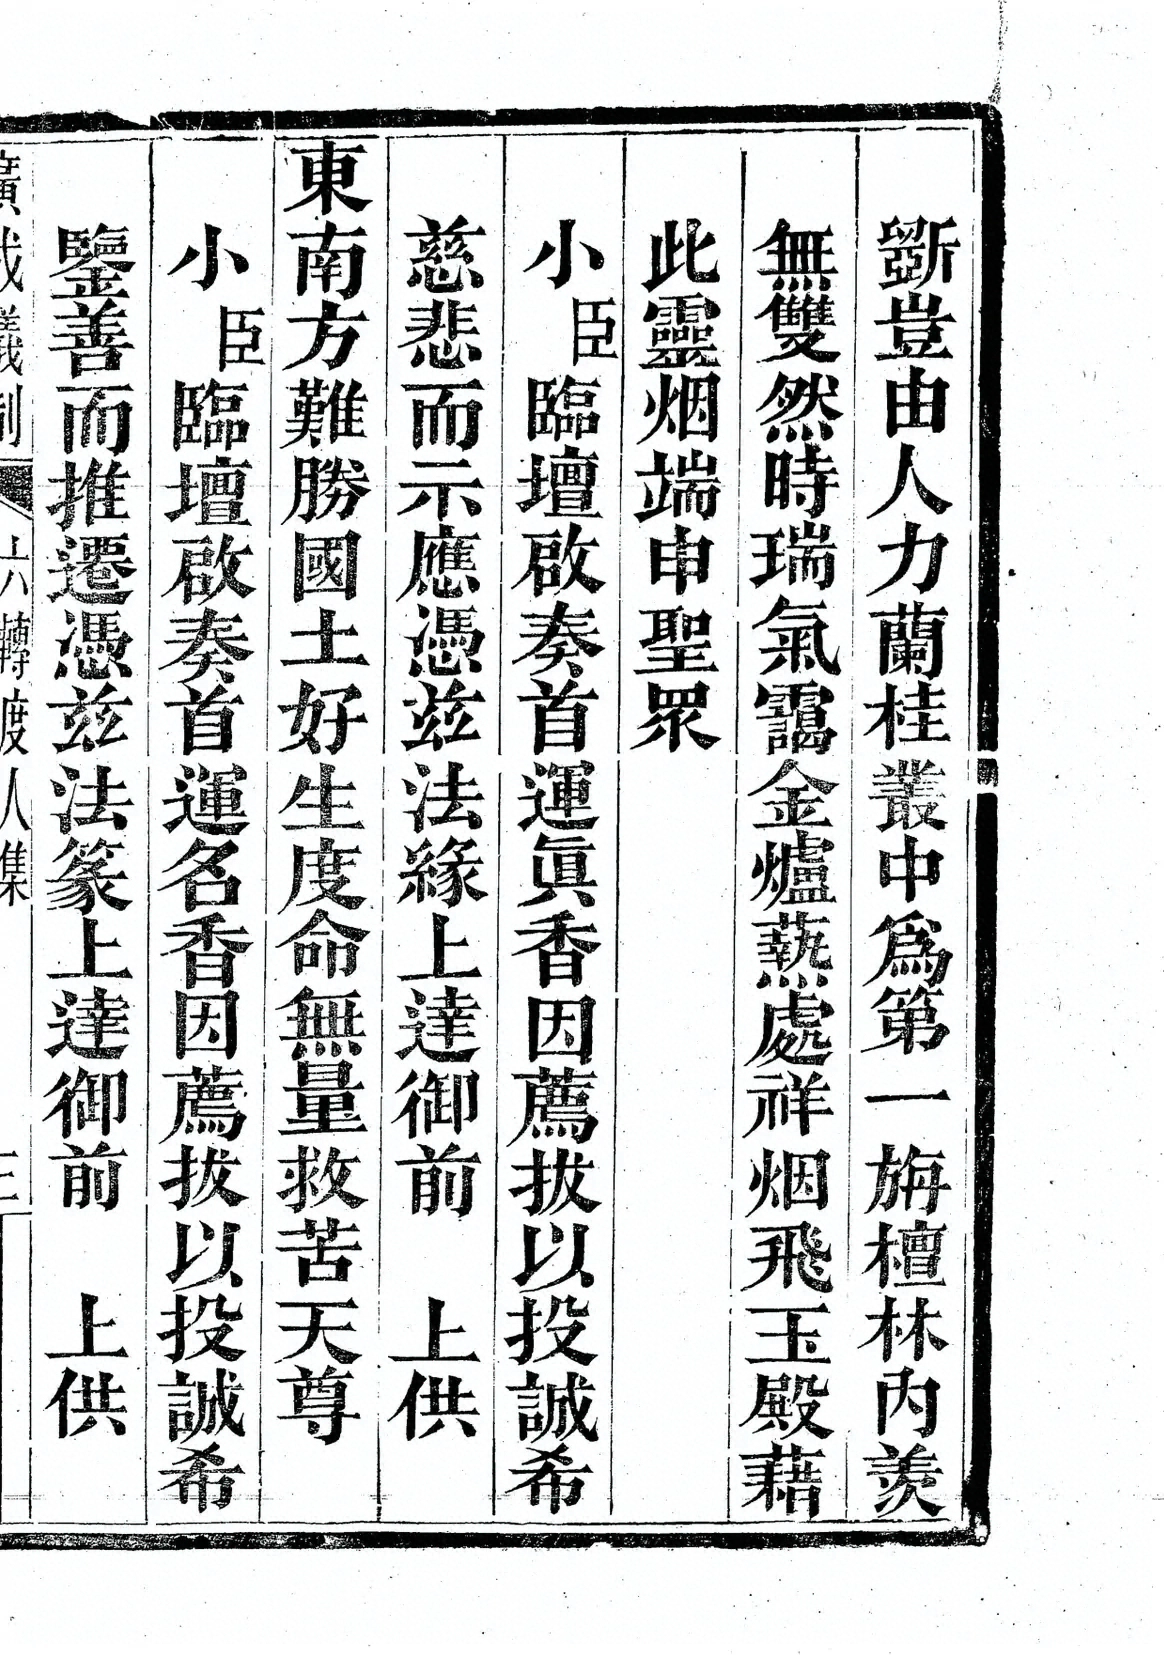 斵豈由人力蘭桂叢中爲第一旃檀林內羨
無雙然時瑞氣靄金爐爇處祥烟飛玉殿藉
此靈烟端申聖眾
小臣臨壇啟奏首運眞香因薦拔以投誠希
慈悲而示應憑茲法緣上達御前　上供
東南方難勝國土好生度命無量救苦天尊
小臣臨壇啟奏首運名香因薦拔以投誠希
鑒善而推遷憑茲法篆上達御前　上供
廣成儀制　六轉度人集　三